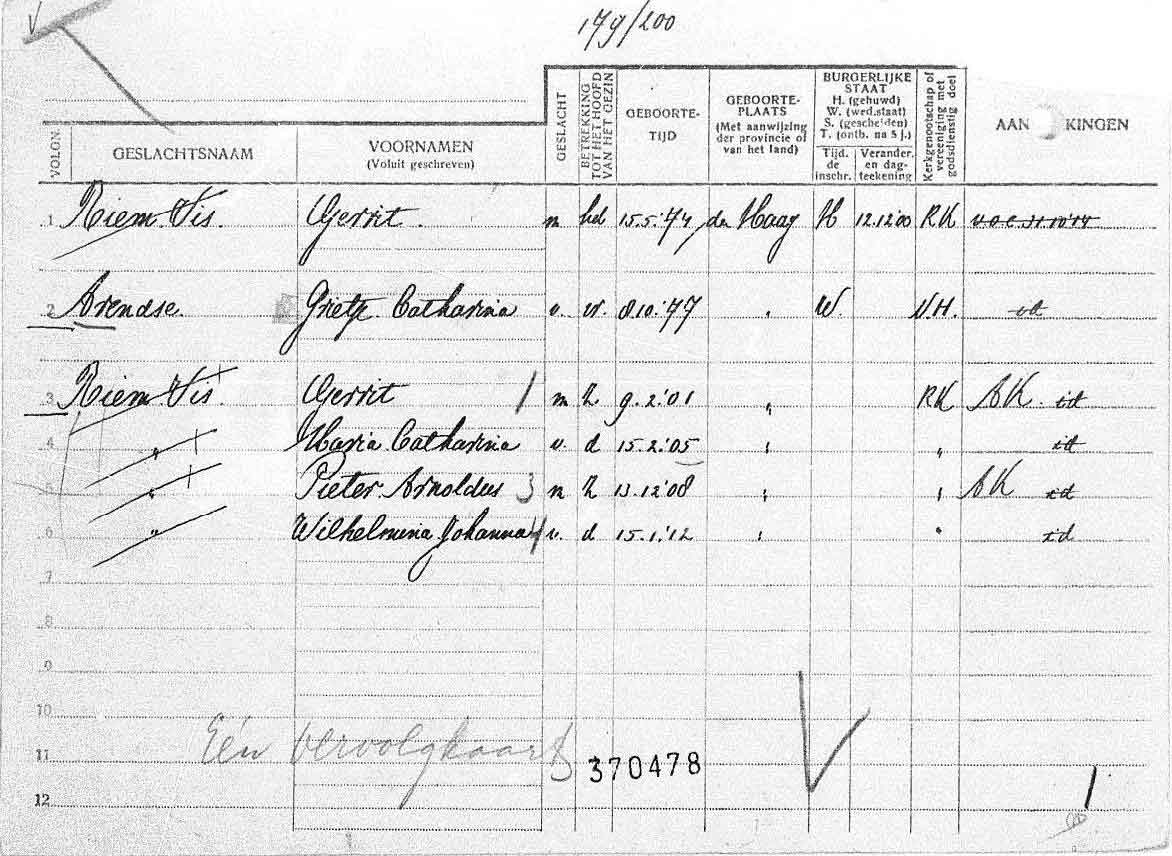 179/200
VOLGN. GESLACHTSNAAM VOORNAMEN (Voluit geschreven) GESLACHT BETREKKING TOT HET HOOFD VAN HET GEZIN GEBOORTE-TIJD GEBOORTE-PLAATS (Met aanwijzing der provincie of van het land) BURGERLIJKE STAAT H. (gehuwd) W. (wed.staat) S. (gescheiden) T. (ontb. na 5 j.) Tijd. de inschr. Verander. en dag-teekening Kerkgenootschap of vereeniging met godsdienstig doel AAN KINGEN
1 Riem Vis. Gerrit. m hd 15.5.'74 den Haag H 12.12'00 RK v.o.e. 31.10'14
2 Arendse. Grietje Catharina v. vr. 8.10.'77 " W. N.H. id
3 Riem Vis. Gerrit 1 m z. 9.2.'01 " RK AK id
4 " Maria Catharina v. d 15.2.'05 " " id
5 " Pieter Arnoldus 3 m z 13.12'08 " " AK id
6 " Wilhelmina Johanna 4 v. d 15.1.'12 " " id
7
8
9
10
11 Eén vervolgkaart 370478
12